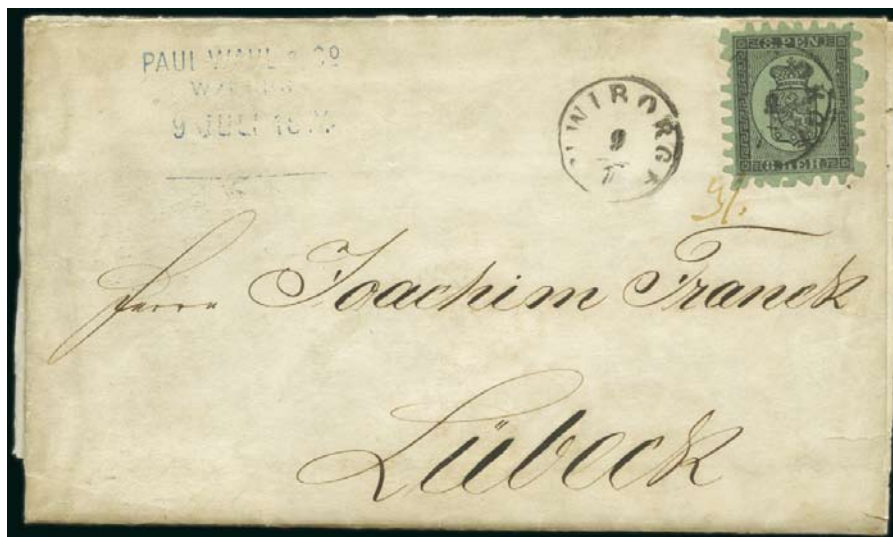 PAUL WAHL & Co
9 JULI 18
WIBORG
9
7
8 PEN
8 PEN
Herrn Joachim Franck
Lübeck